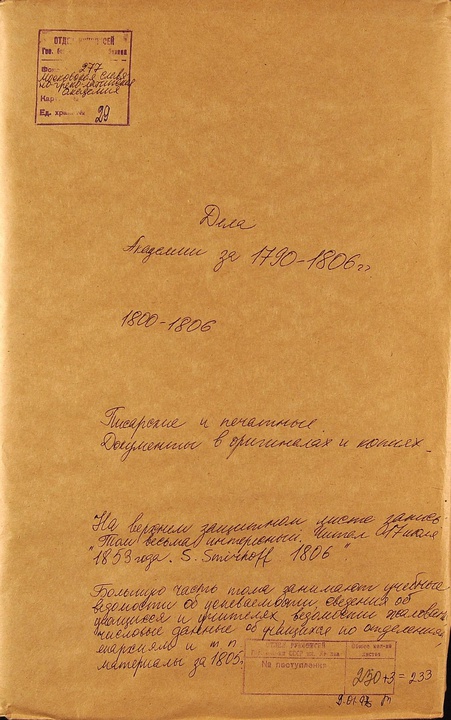 ОТДЕЛ РУКОПИСЕЙ
Гос.
Фонд 277
Московская славя
но-греко-латинская
академия
Ед. хран. № 29
Дела
Академии за 1790-1806 гг
1800-1806
Писарские и печатные.
Документы в оригиналах и копиях.
На верхнем защитном листе запись:
"Том весьма интересный. Читал 17 июля
1853 года. S. Smirnoff 1806"
Большую часть тома занимают учебные
ведомости об успеваемости, сведения об
учащихся и учителях, ведомости жалован
числовые данные об учащихся по отделениям,
епархиям и т п
материалы за 1805.
ОТДЕЛ РУКОПИСЕЙ
СССР им.
№ поступления
Общее кол-во
листов
230+3=233